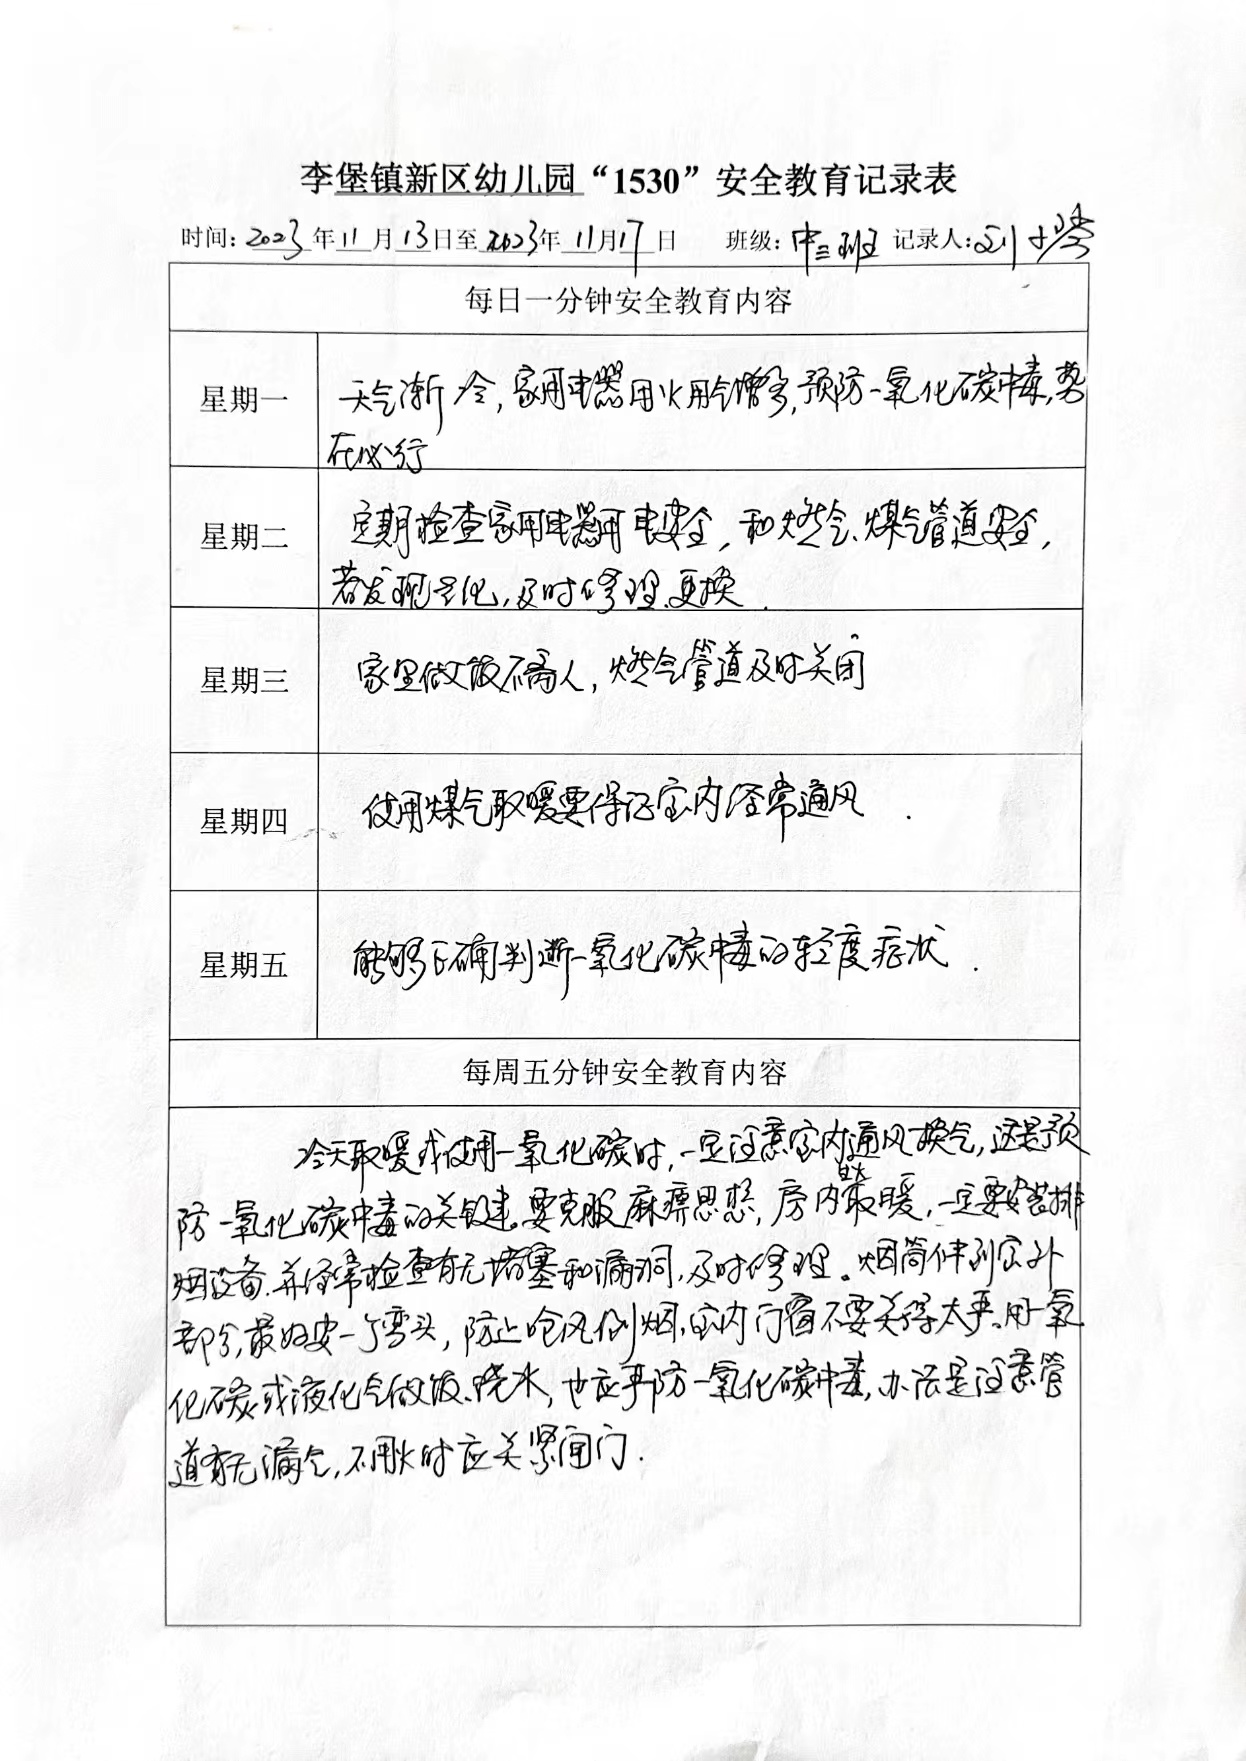 李堡镇新区幼儿园“1530”安全教育记录表
时间：2023年11月13日至2023年11月17日 班级：中三班 记录人：刘
每日一分钟安全教育内容
星期一 天气渐冷，家用电器用火用气增多，预防一氧化碳中毒，势
在必行
星期二 定期检查家用电器用电安全，和燃气、煤气管道安全，
若发现老化，及时修理、更换.
星期三 家里做饭不离人，燃气管道及时关闭
星期四 使用煤气取暖要保证室内经常通风.
星期五 能够正确判断一氧化碳中毒的轻度症状.
每周五分钟安全教育内容
冷天取暖或使用一氧化碳时，一定注意室内通风换气，这是预
防一氧化碳中毒的关键。要克服麻痹思想，房内取暖，一定要安装排
烟设备.并经常检查有无堵塞和漏洞，及时修理。烟筒伸到室外
部分，最好安一个弯头，防止呛风倒烟，室内门窗不要关得太严。用一氧
化碳或液化气做饭、烧水，也应严防一氧化碳中毒，办法是注意管
道有无漏气，不用火时应关紧闸门.